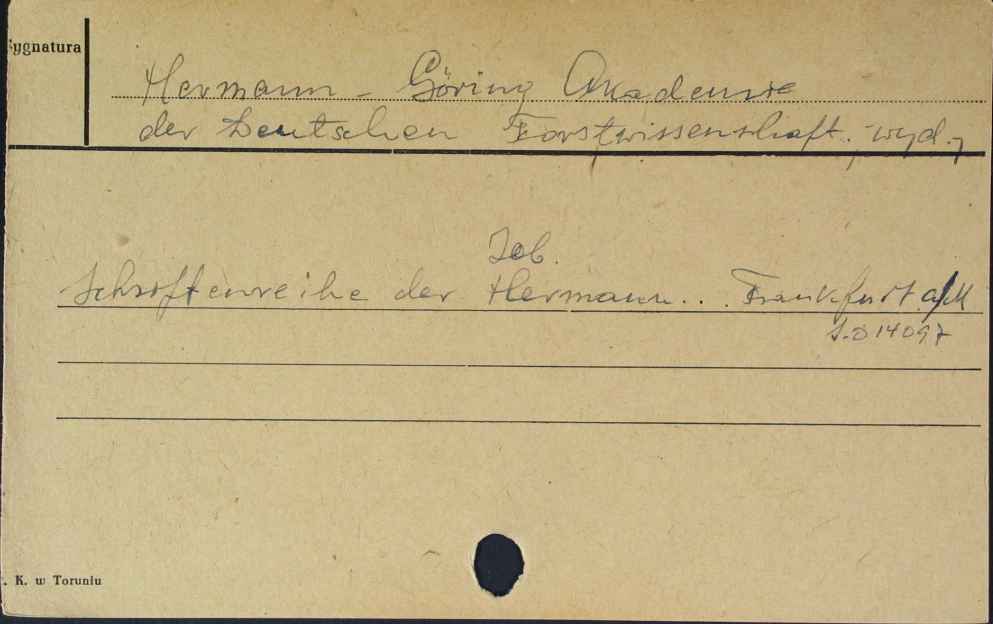 Sygnatura
Hermann - Göring Akademie
der Deutschen Forstwissenschaft, wyd.
Zob.
Schriftenreihe der Hermann... Frankfurt a/M
S.D 14097
. K. w Toruniu